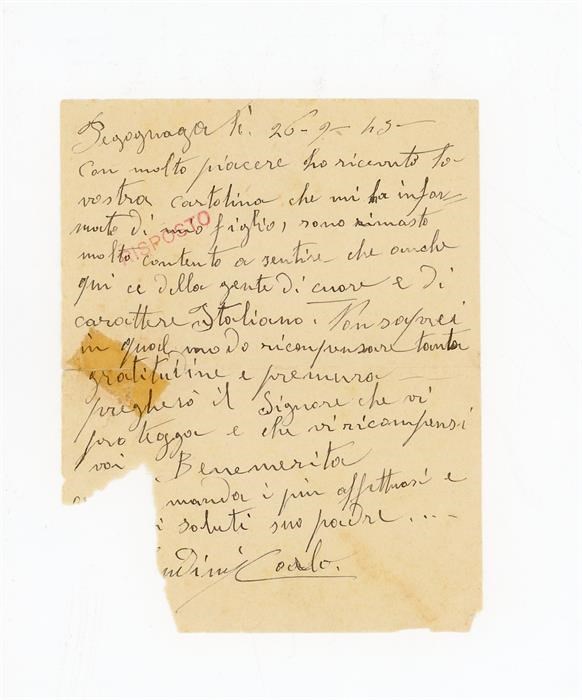 Pegognaga li. 26-9-43-
Con molto piacere ho ricevuto la
vostra cartolina che mi ha infor=
mato di mio figlio, sono rimasto
RISPOSTO
molto contento a sentire che anche
qui ce della gente di cuore e di
carattere Italiano. Non saprei
in qual modo ricompensare tanta
gratitudine e premura
pregherò il Signore che vi
protegga e che vi ricompensi
voi Benemerita
manda i più affettuosi e
i saluti suo padre....
ndini Carlo.